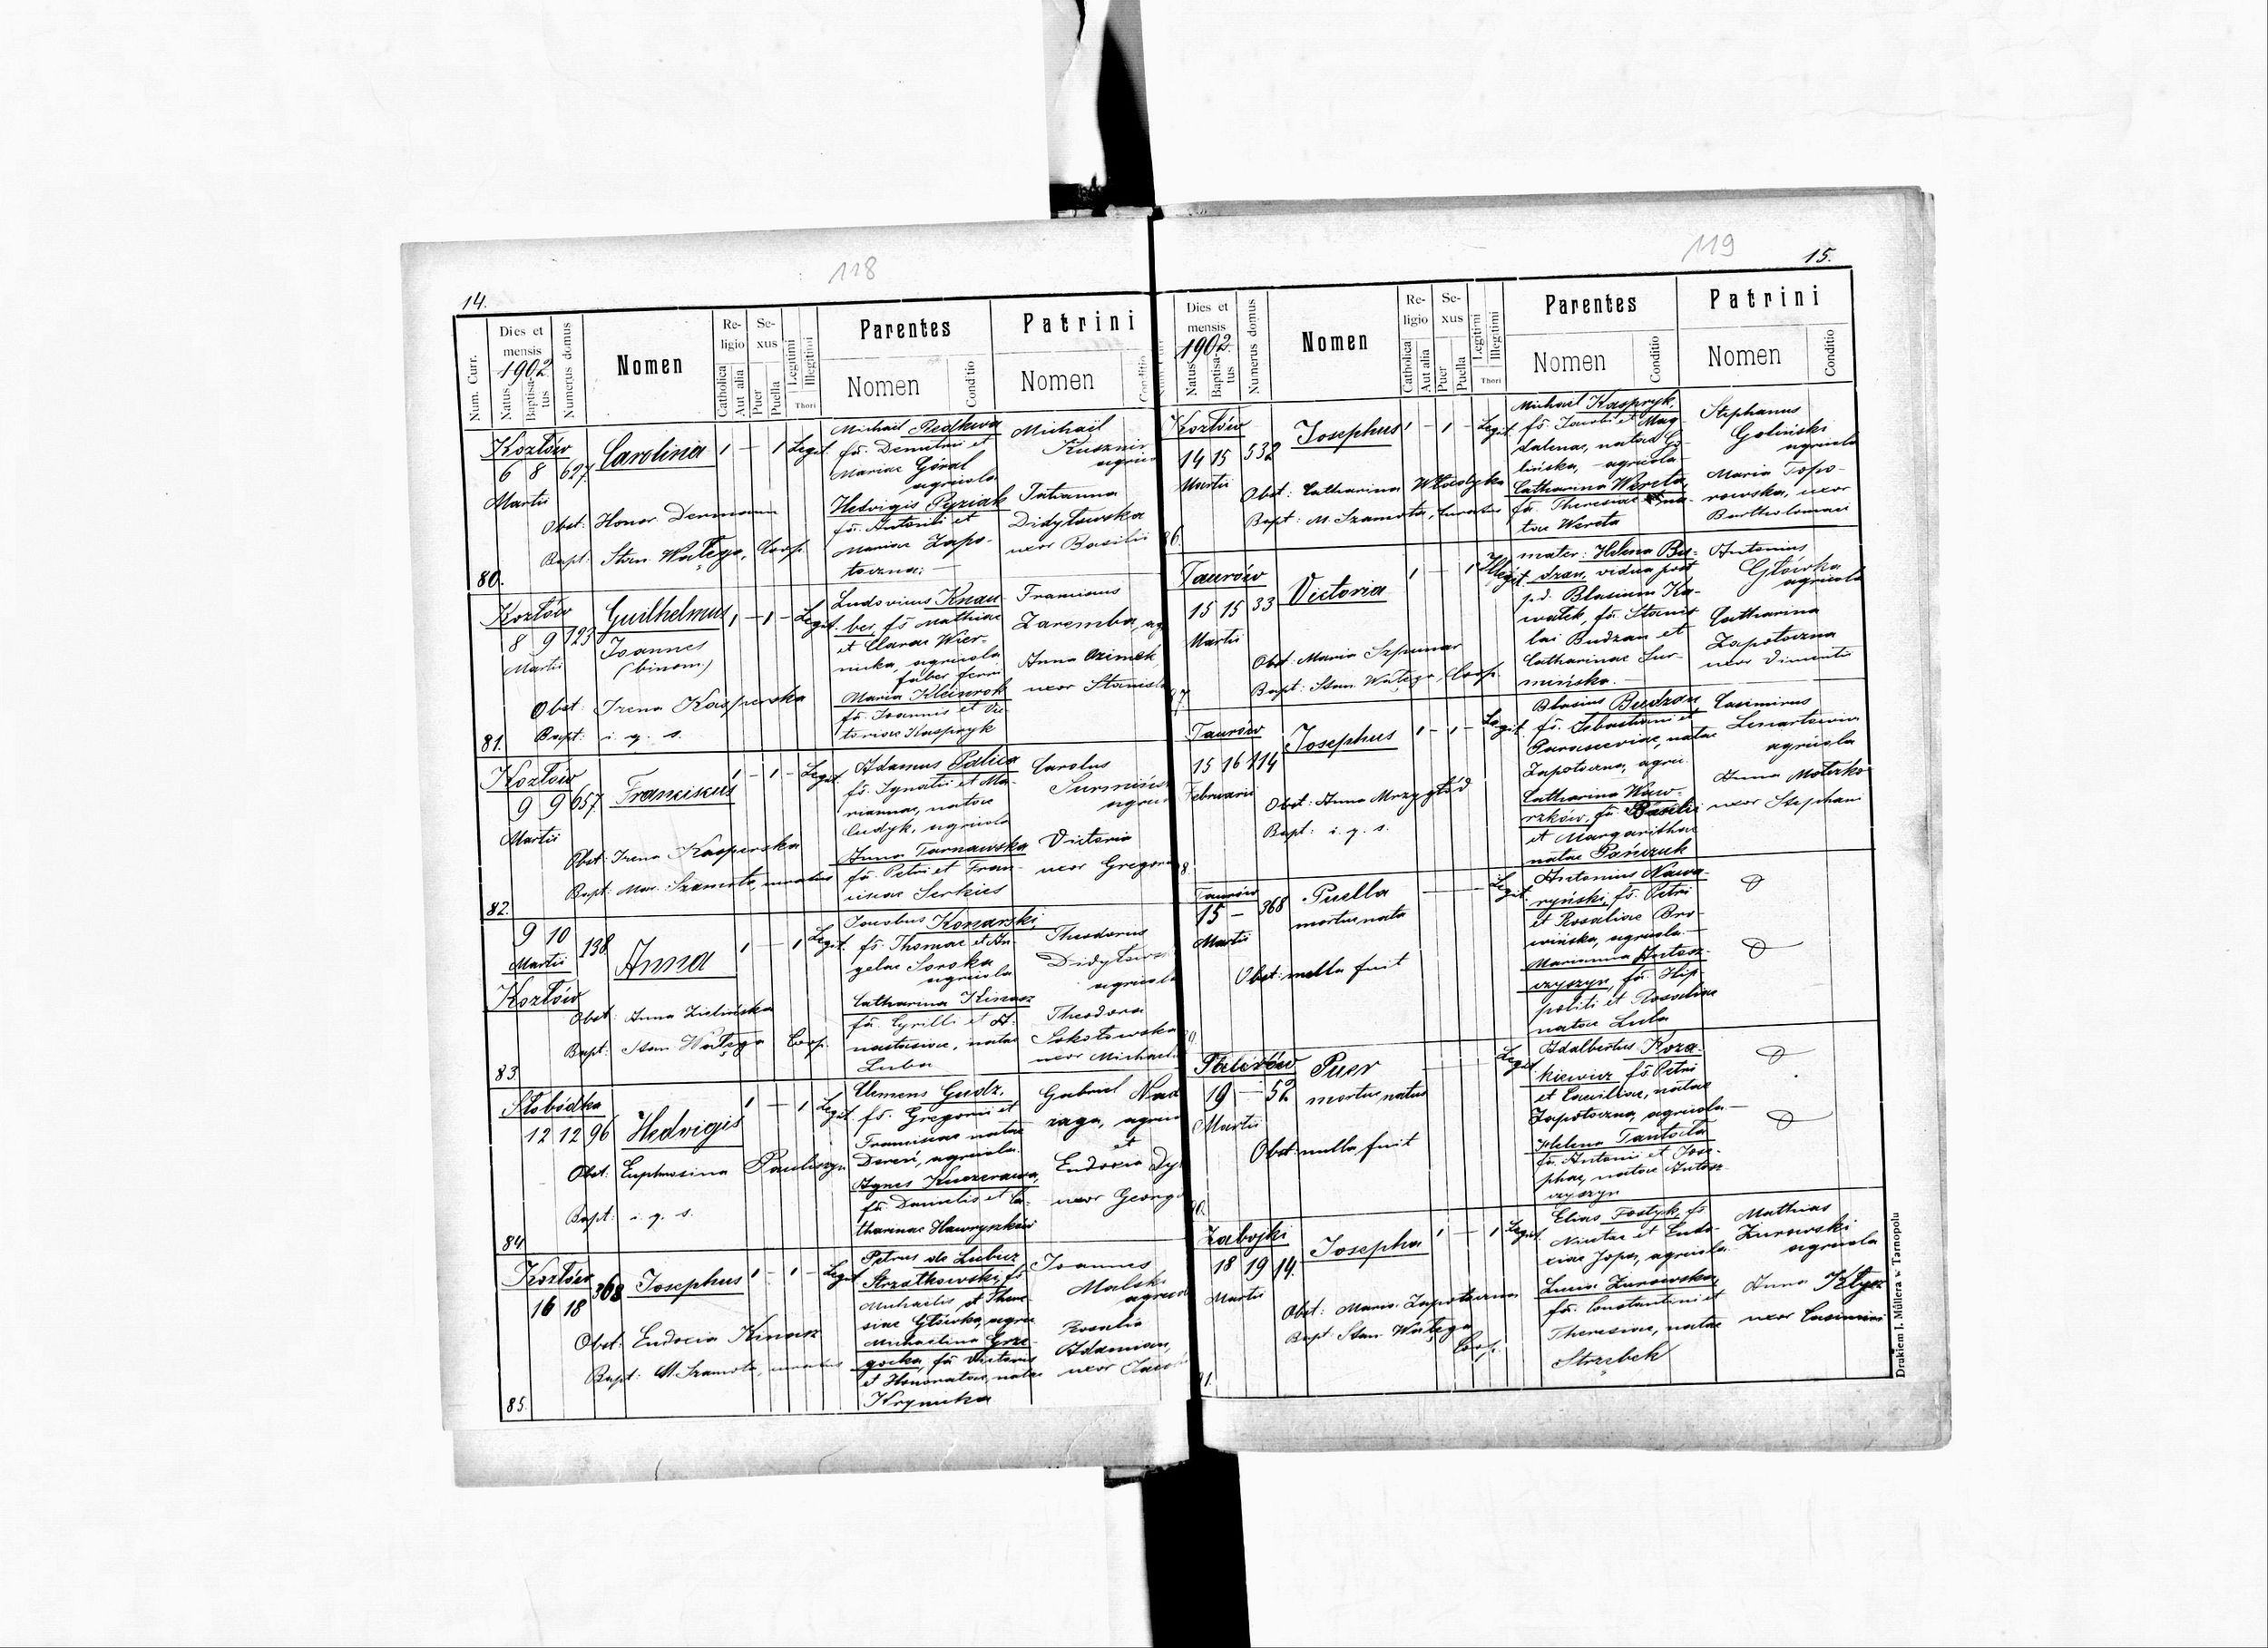 118
14.
Num. Curr.
Dies et mensis
1902
Natus
Baptisatus
Numerus domus
Nomen
Religio
Catholica
Aut alia
Sexus
Puer
Puella
Legitimi
Illegitimi
Thori
Parentes
Nomen
Conditio
Patrini
Nomen
Conditio
Kozłów
6 8 627
Martii
Carolina
1 — 1 Legit.
Obst: Honor. Dermann
Bapt: Stan. Wałęga, Coop.
80.
Michael Redkwa
fs. Demetrii et
Mariae Góral
agricola
Hedvigis Pyziak
fa. Antonii et
Mariae Zapo-
toczna.
Michael
Kusznir
Tatianna
Didyłowska
uxor Basilii
Kozłów
8 9 123
Martii
Guilhelmus
Joannes
(binom.)
1 — 1 — Legit.
Obst: Irena Kasperska
Bapt: i. q. s.
81.
Ludovicus Knau-
ber, fs Mathiae
et Clarae Wier-
nicka, agricola
faber ferri
Maria Kleinrok
fa. Joannis et Vic-
toriae Kaspryk
Franciscus
Zaremba, ag
Anna Ozimek
uxor Stanisla
Kozłów
9 9 657
Martii
Franciscus
1 — 1 — Legit.
Obst: Irena Kasperska
Bapt: Mar. Szamota, curatus
82.
Adamus Palica
fs. Ignatii et Ma-
rianna, natae
Cudyk, agricola
Anna Tarnawska
fa. Petri et Fran-
ciscae Serkies
Carolus
Surmińs
Victoria
uxor Gregor
9 10 138
Martii
Kozłów
Anna
1 — 1 Legit.
Obst: Anna Zielińska
Bapt: Stan. Wałęga Coop.
83.
Jacobus Konarski,
fs. Thomae et An-
gelae Sorska
agricola
Catharina Kinasz
fa. Cyrilli et A-
nastasiae, natae
Luba
Theodorus
Didyłows
agricola
Theodora
Sokołowska
uxor Michaeli
Słobódka
12 12 96
Hedvigis
1 — 1 Legit.
Obst: Euphrosina Pauliszyn
Bapt: i. q. s.
84
Clemens Gudz,
fs. Gregorii et
Franciscae natae
Dereń, agricola.
Agnes Kuczerawa,
fa. Danielis et Ca-
tharinae Hawryszków
Gabriel Nad
raga, agrico
et
Eudocia Dy
uxor Georgi
Kozłów
16 18 368
Josephus
1 — 1 — Legit
Obst: Eudocia Kinasz
Bapt: M. Szamota, curatus
85.
Petrus de Lubicz
Strzałkowski, fs
Michaelis et There-
siae Główka, agric
Michaelina Grze-
gocka, fa Victoris
et Honoratae, natae
Krynicka
Joannes
Malski
agricol
Rosalia
Adamian,
uxor Jacob
119
15.
Dies et mensis
1902
Natus
Baptisatus
Numerus domus
Nomen
Religio
Catholica
Aut alia
Sexus
Puer
Puella
Legitimi
Illegitimi
Thori
Parentes
Nomen
Conditio
Patrini
Nomen
Conditio
Kozłów
14 15 532
Martii
Josephus
1 — 1 — Legit
Obst: Catharina Włodyka
Bapt: M. Szamota, curatus
86.
Michael Kaspryk,
fs. Jacobi et Mag
dalena, natae Go-
lińska, agricola
Catharina Wereta,
fa. Theresiae na-
tae Wereta
Stephanus
Goliński
agricola
Maria Topo-
rowska, uxor
Bartholomaei
Taurów
15 15 33
Martii
Victoria
1 — 1 Illegit.
Obst: Maria Szpunar
Bapt: Stan. Wałęga Coop.
87
mater: Helena Bu-
dzan, vidua post
p.d. Blasium Ka-
wałek, fa. Stanis-
lai Budzan et
Catharinae Sur-
mińska.
Antonius
Główka
agricola
Catharina
Zapotoczna
uxor Dimentii
Taurów
15 16 114
Februarii
Josephus
1 — 1 — Legit.
Obst: Anna Mrzygłód
Bapt: i. q. s.
8.
Blasius Budzan
fs. Sebastiani et
Parasceviae, natae
Zapotoczna, agri-
Catharina Waw-
rzków, fa. Basilii
et Margarithae
natae Pańczuk
Casimirus
Lenartowicz
agricola
Anna Motezko
uxor Stephani
Taurów
15 — 368
Martii
Puella
mortue nata
Legit.
Obst: nulla fuit
Antonius Nawa-
ryński, fs. Petri
et Rosaliae Bro-
wińska, agricola.—
Marianna Antosz-
czyszyn, fa. Hip-
politi et Rosaliae
natae Luba
19 — 52
Martii
Puer
mortue natus
Legit.
Obst: nulla fuit
Adalbertus Koza-
kiewicz fs. Petri
et Caeciliae, natae
Zapotoczna, agricola.—
Helena Tantoła
fa. Antonii et Jose-
phae, natae Antosz-
czyszyn
Zabojki
18 19 14.
Martii
Josepha
1 — 1 Legit.
Obst: Maria Zapotoczna
Bapt: Stan. Wałęga
Coop.
91.
Elias Fostyk, fs
Nicetae et Eudo-
ciae Jopa, agricola.
Lucia Żurowska,
fa. Constantini et
Theresiae, natae
Strzebek
Mathias
Żurowski
agricola
Anna Kłycz
uxor Casimiri
Drukiem J. Müllera w Tarnopolu